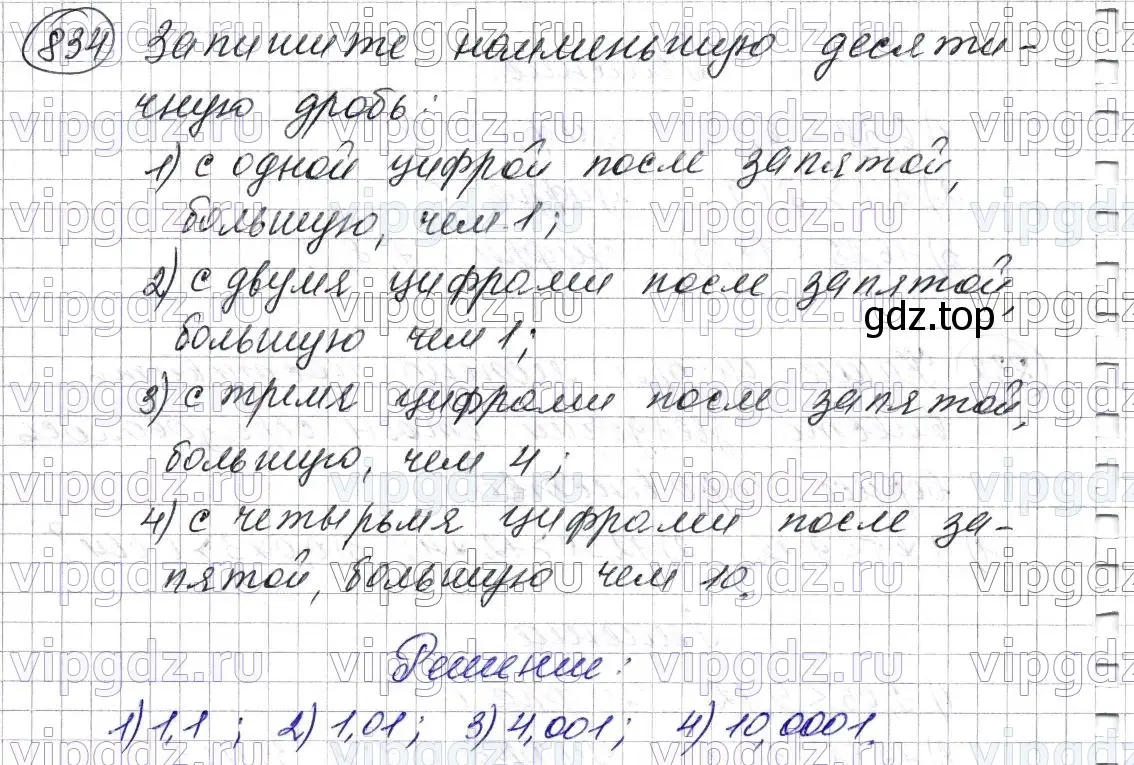 834 Запишите наименьшую десяти-
чную дробь:
1) с одной цифрой после запятой,
большую, чем 1;
2) с двумя цифрами после запятой,
большую чем 1;
gdz.top
3) с тремя цифрами после запятой,
большую, чем 4;
4) с четырьмя цифрами после за-
пятой, большую чем 10.
Решение:
1) 1,1 ; 2) 1,01; 3) 4,001; 4) 10,0001.
vipgdz.ru